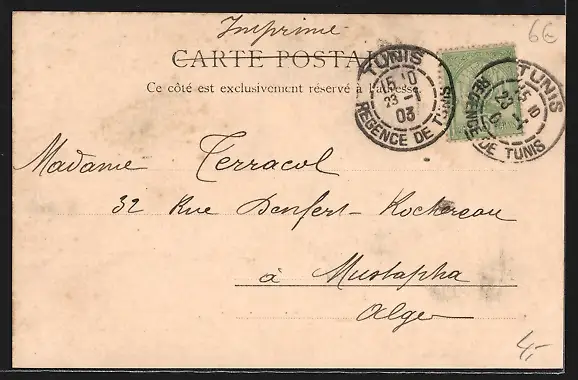 Imprimé
6E
CARTE POSTALE
Ce côté est exclusivement réservé à l'adresse
TUNIS
15 10
23 -1
03
REGENCE DE TUNIS
TUNIS
15 10
23
REGENCE DE TUNIS
Madame Terracol
32 Rue Denfert-Rochereau
à Mustapha
Alger
4,-